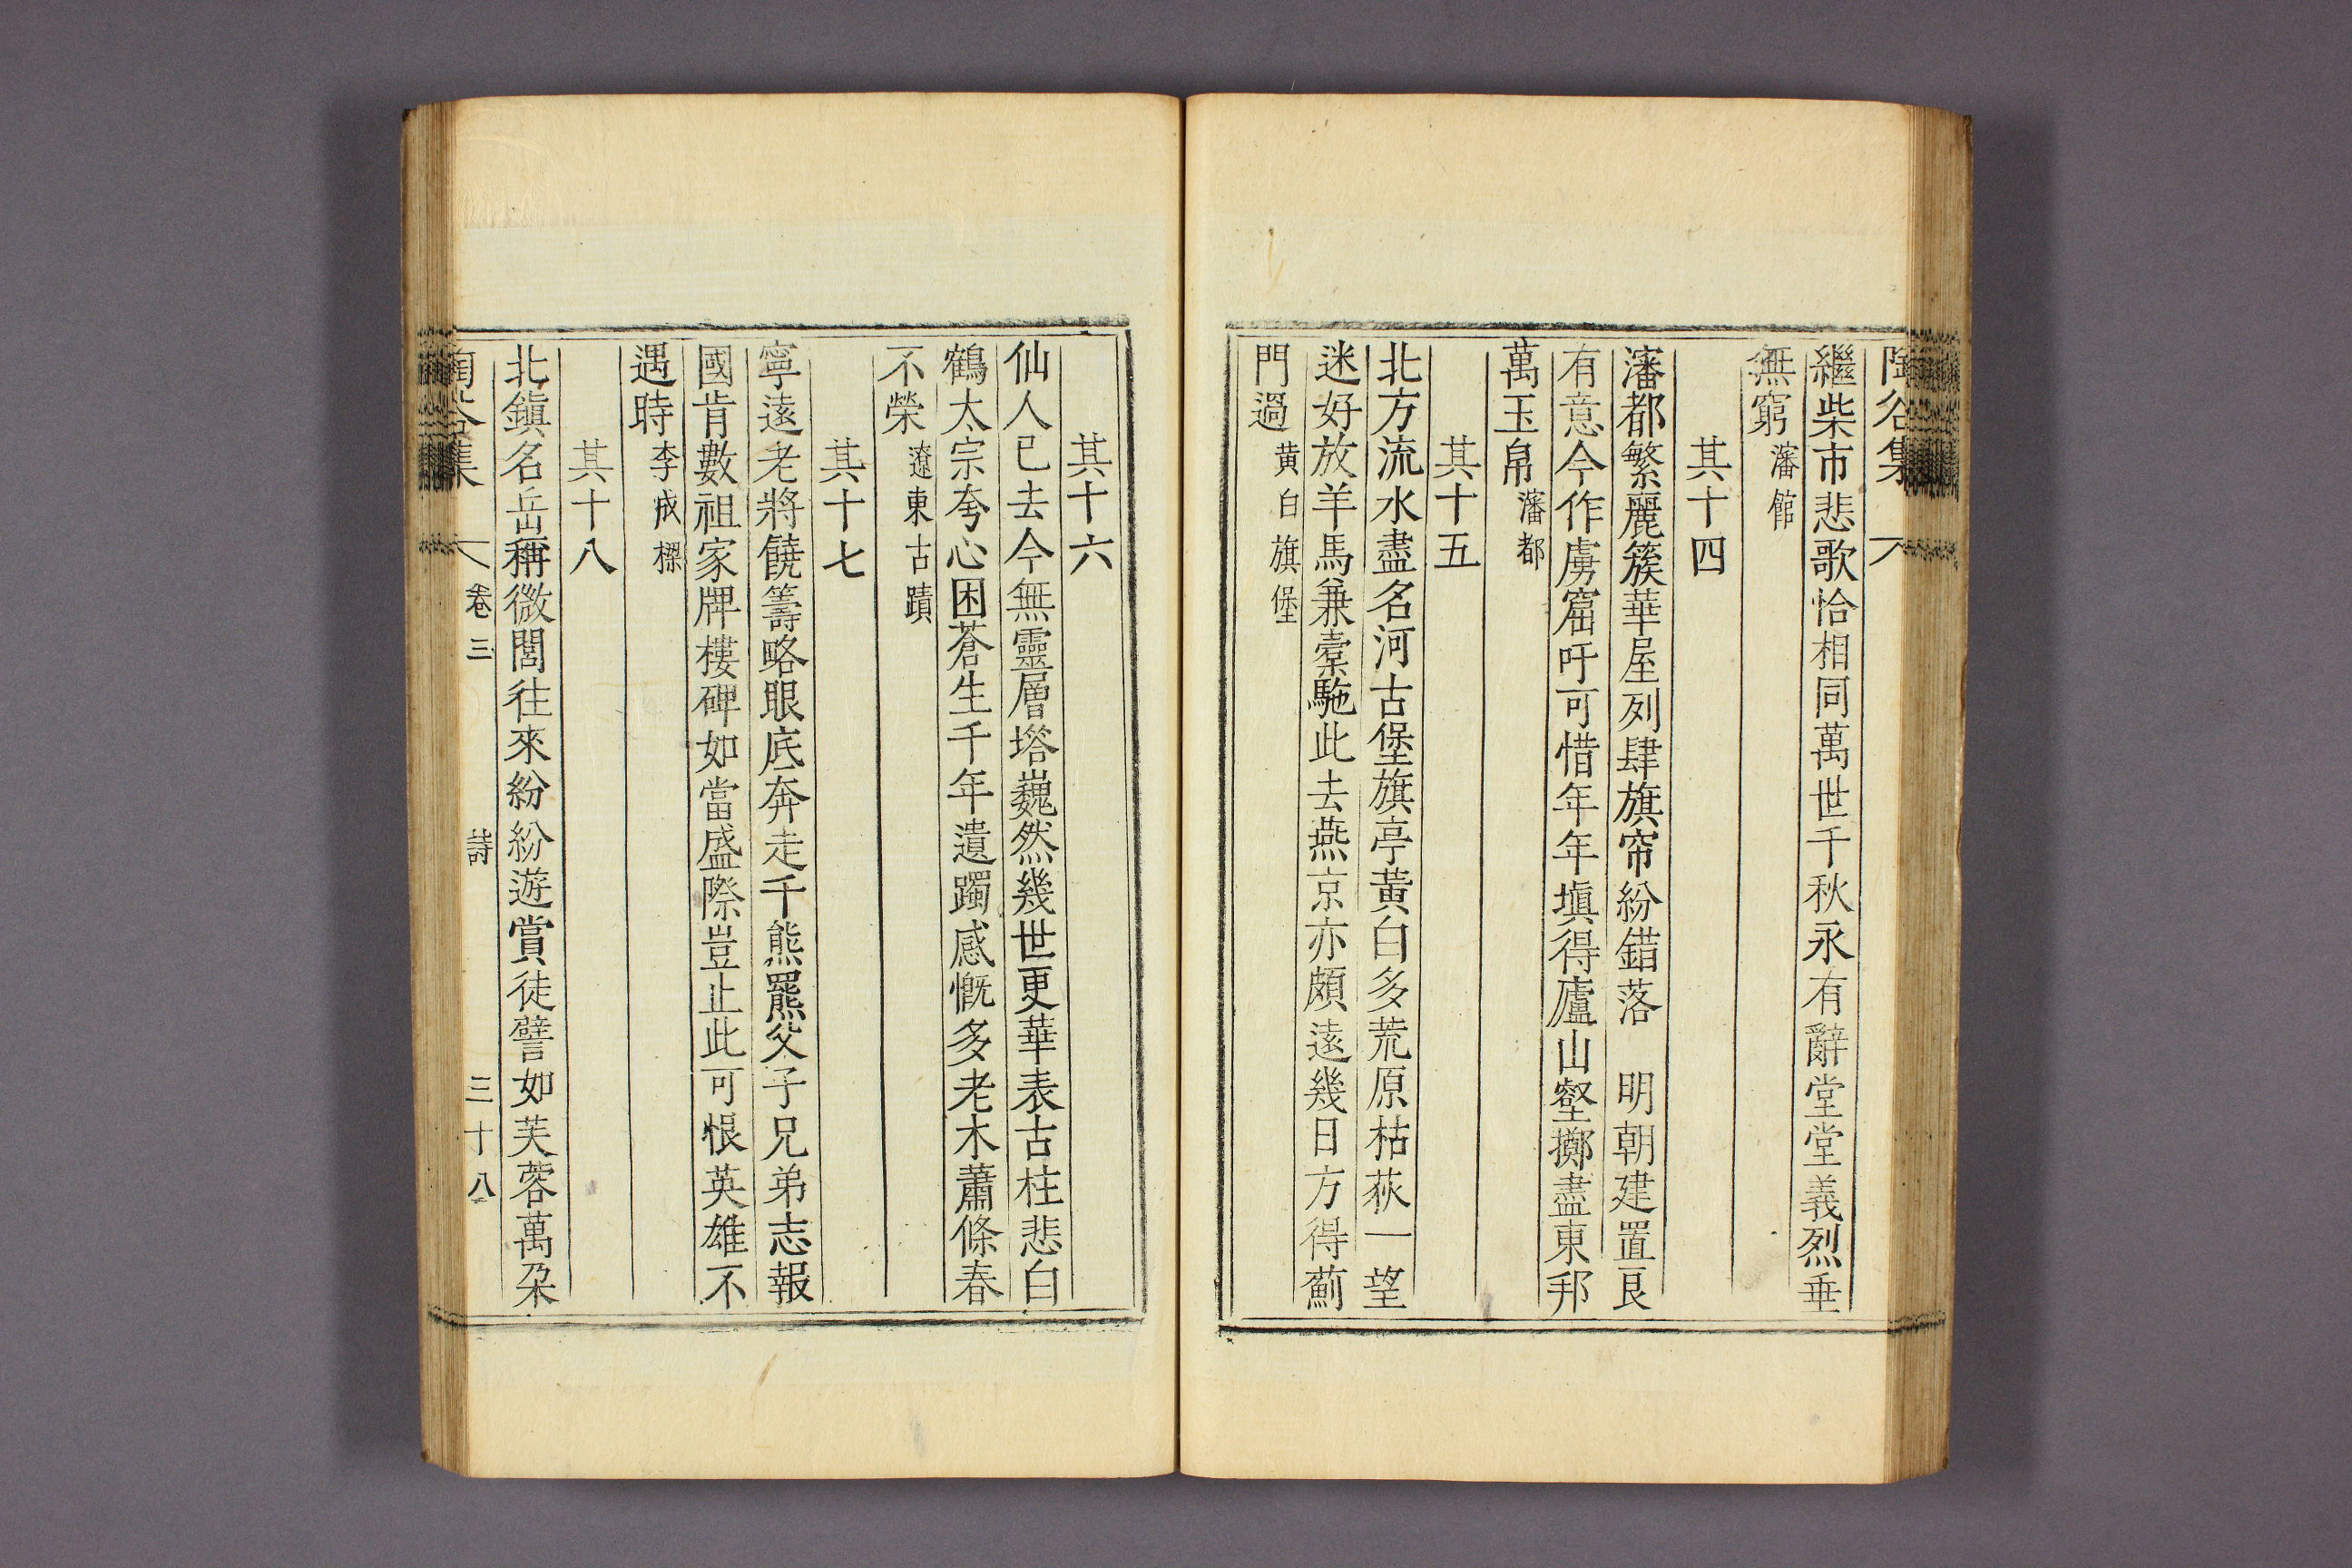 陶谷集
繼柴市悲歌恰相同萬世千秋永有辭堂堂義烈垂
無窮 瀋館
其十四
瀋都繁麗簇華屋列肆旗帘紛錯落　明朝建置良
有意今作虜窟吁可惜年年塡得廬山壑擲盡東邦
萬玉帛 瀋都
其十五
北方流水盡名河古堡旗亭黃白多荒原枯荻一望
迷好放羊馬兼橐駞此去燕京亦頗遠幾日方得薊
門過 黃白旗堡
其十六
仙人已去今無靈層塔巍然幾世更華表古柱悲白
鶴太宗夸心困蒼生千年遺躅感慨多老木蕭條春
不榮 遼東古蹟
其十七
寧遠老將饒籌略眼底奔走千熊羆父子兄弟志報
國肯數祖家牌樓碑如當盛際豈止此可恨英雄不
遇時 李成樑
其十八
北鎭名岳稱微閭往來紛紛遊賞徒譬如芙蓉萬朶
陶谷集 卷三 詩 三十八